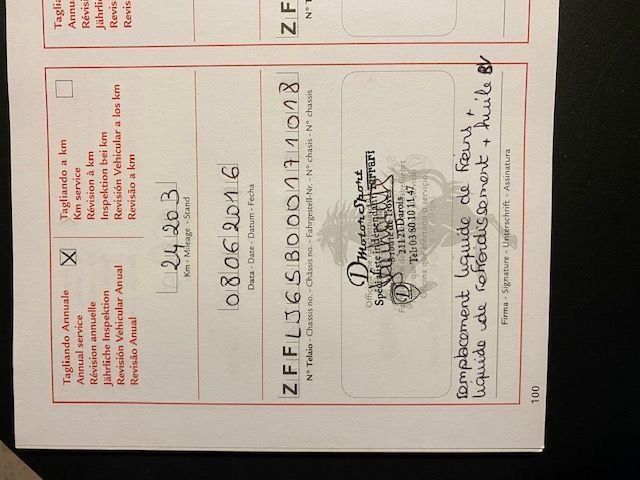 Tagliando Annuale
Annual service
Révision annuelle
Jährliche Inspektion
Revisión Vehicular Anual
Revisão Anual
Tagliando a km
Km service
Révision à km
Inspektion bei km
Revisión Vehicular a los km
Revisão a km
24203
Km - Mileage - Stand
08062016
Data - Date - Datum - Fecha
ZFFLJ65B000171018
N° Telaio - Chassis no. - Châssis no. - Fahrgestell-Nr. - N° chasis - N° chassis
D Motor Sport
Spécialiste Indépendant Ferrari
21121 Darois
Tel: 03 80 10 11 47
remplacement liquide de Freins +
liquide de refroidissement + huile BV
Firma - Signature - Unterschrift - Assinatura
100